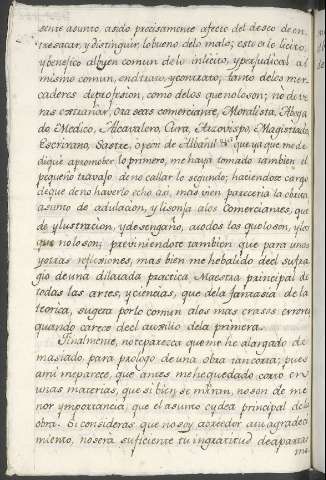 sente asunto, asido precisamente afecto del deseo de en-
tresacar, y distinguir, lo bueno, delo malo; esto es lo licito,
y benefico al buen comun, delo inlicito, y perjudicial al
mismo comun, en dtrato, y contrato; tanto delos mer-
caderes de profesion, como delos que no lo son; no deve-
ras extrañar, óra seas comerciante, Moralista, Aboga
do Medico, Alcavalero, Cura, Arzovispo, Magistrado,
Escrivano, Sastre, ó peon de Albañil &ª que ya que me de-
diqué apromober lo primero, me haya tomado tambien el
pequeño travajo de no callar lo segundo; haciendote cargo
de que de no haverlo echo asi, mas vien pareceria la obrita
asunto de adulacion, y lisonja alos Comerciantes, que
de ylustracion, y desengaño, atodos los que lo son, y los
que no lo son; previniendote tambien que para unas
y otras reflexiones, mas bien me he balido del sufra-
gio de una dilatada practica, Maestra principal de
todas las artes, y ciencias, que dela fantasia de la
teorica, sugeta por lo comun alos mas crasos errores
quando carece del auxilio dela primera.
Finalmente, note parezca que me he alargado de-
masiado, para prologo de una obra tan corta; pues
ami me parece, que antes me he quedado corto en
unas materias, que si bien se miran, no son de me-
nor ymportancia, que el asunto cydea principal dela
obra. Si consideras que no soy acreedor a tu agradeci-
miento, no sera suficiente tu ingratitud de apartar
me